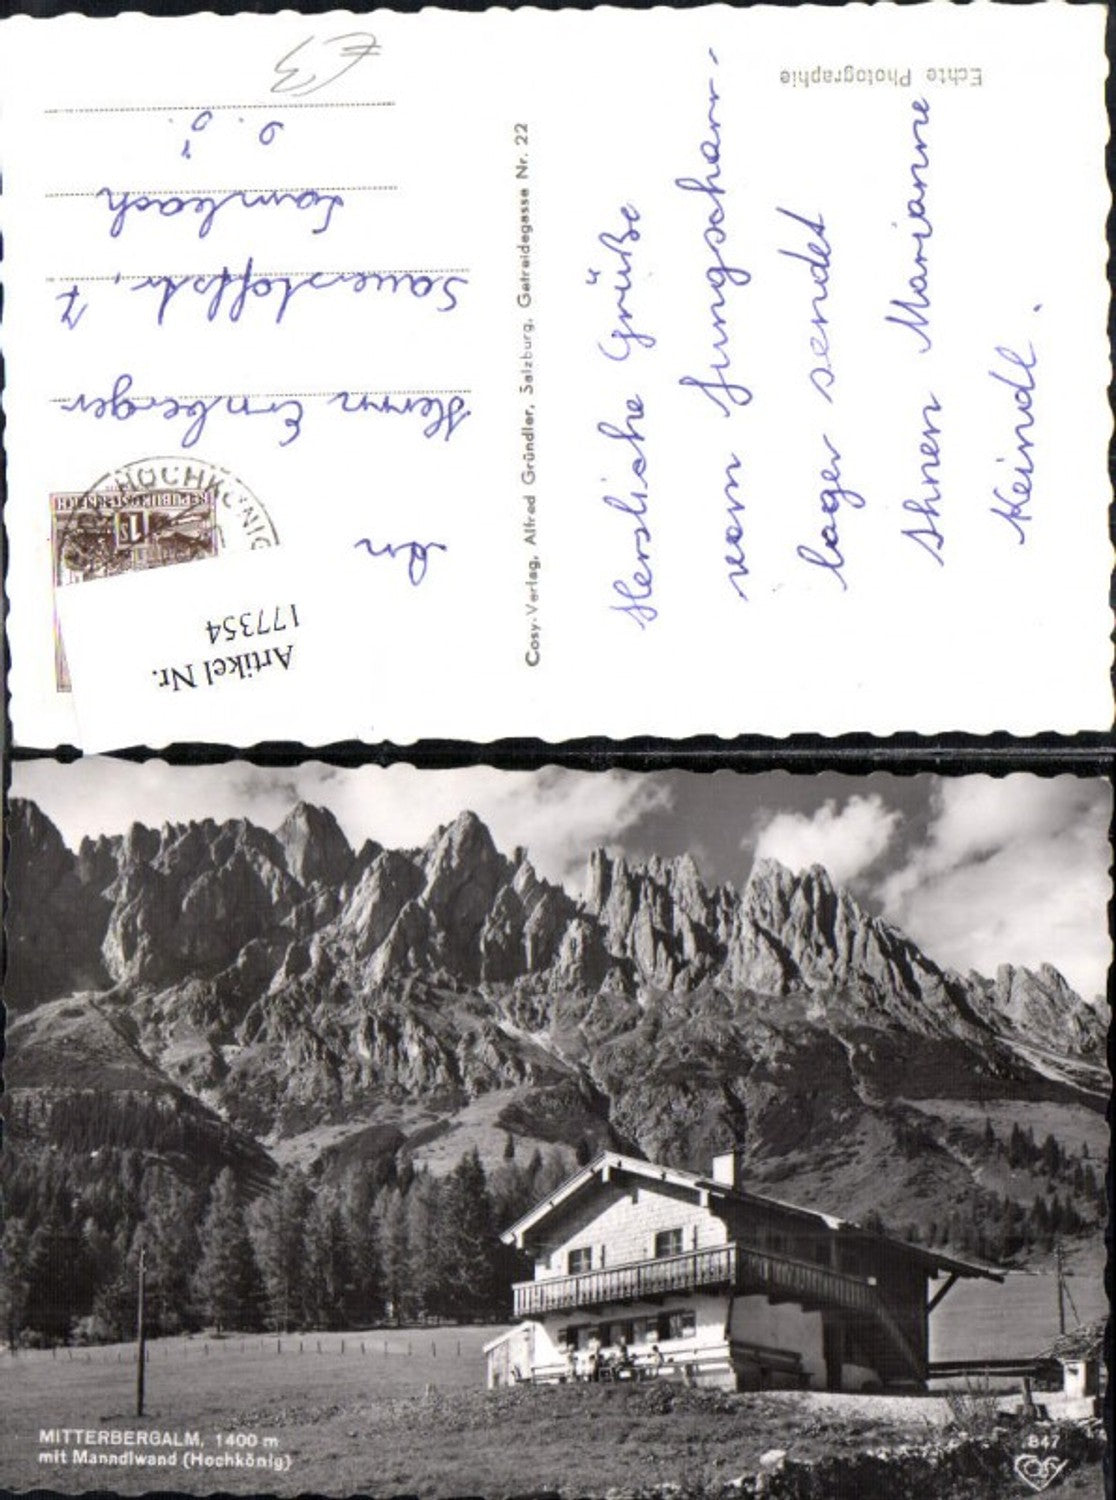 Echte Photographie
Herzliche Grüße
vom Jungschar-
lager sendet
Ihnen Marianne
Keindl.
Cosy-Verlag, Alfred Gründler, Salzburg, Getreidegasse Nr. 22
Artikel Nr.
177354
REPUBLIK ÖSTERREICH
1 S
HOCHKÖNIG
An
Herrn Ernberger
Sauerstoffstr, 7
Lambach
O. Ö.
€3
MITTERBERGALM, 1400 m
mit Manndlwand (Hochkönig)
847
COSY